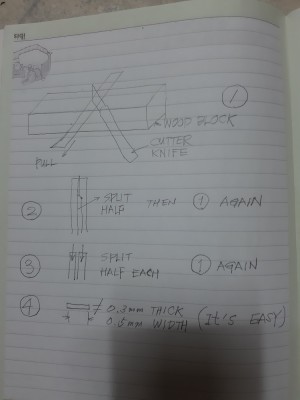 ①
WOOD BLOCK
CUTTER
KNIFE
PULL
② SPLIT HALF THEN ① AGAIN
③ SPLIT HALF EACH ① AGAIN
④ 0.3mm THICK
0.5mm WIDTH (IT'S EASY)